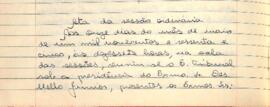 Ata da sessão ordinária
Aos onze dias do mês de maio
de um mil novecentos e sessenta e
cinco, às dezessete horas, na sala
das sessões, reuniu-se o E. Tribunal
sob a presidência do Exmo. Sr. Des.
Mello Júnior, presentes os Exmos Srs.